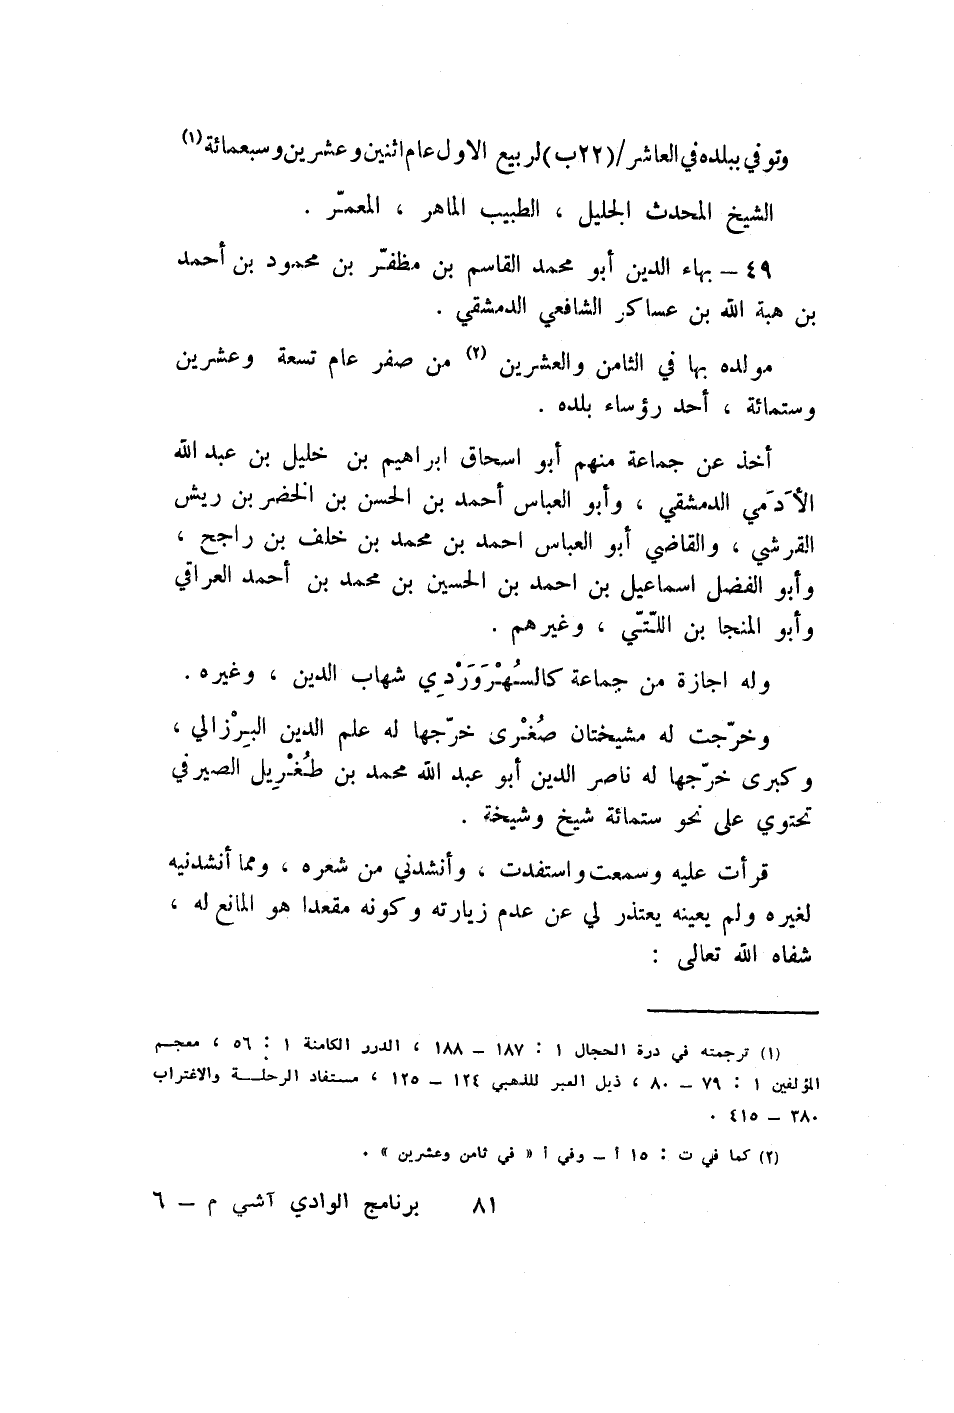 وتوفي ببلده في العاشر /(٢٢ب) لربيع الاول عام اثنين وعشرين وسبعمائة (١)
الشيخ المحدث الجليل ، الطبيب الماهر ، المعمّر .
٤٩ ــ بهاء الدين أبو محمد القاسم بن مظفّر بن محمود بن أحمد
بن هبة الله بن عساكر الشافعي الدمشقي .
مولده بها في الثامن والعشرين (٢) من صفر عام تسعة وعشرين
وستمائة ، أحد رؤساء بلده .
أخذ عن جماعة منهم أبو اسحاق ابراهيم بن خليل بن عبد الله
الأَدَمي الدمشقي ، وأبو العباس أحمد بن الحسن بن الخضر بن ريش
القرشي ، والقاضي أبو العباس احمد بن محمد بن خلف بن راجح ،
وأبو الفضل اسماعيل بن احمد بن الحسين بن محمد بن أحمد العراقي
وأبو المنجا بن اللّتّي ، وغيرهم .
وله اجازة من جماعة كالسُهْرَوَرْدِي شهاب الدين ، وغيره .
وخرّجت له مشيختان صُغْرى خرّجها له علم الدين البِرْزالي ،
وكبرى خرّجها له ناصر الدين أبو عبد الله محمد بن طُغْرِيل الصيرفي
تحتوي على نحو ستمائة شيخ وشيخة .
قرأت عليه وسمعت واستفدت ، وأنشدني من شعره ، ومما أنشدنيه
لغيره ولم يعينه يعتذر لي عن عدم زيارته وكونه مقعدا هو المانع له ،
شفاه الله تعالى :
(١) ترجمته في درة الحجال ١ : ١٨٧ ــ ١٨٨ ، الدرر الكامنة ١ : ٥٦ ، معجـم
المؤلفين ١ : ٧٩ ــ ٨٠ ، ذيل العبر للذهبي ١٢٤ ــ ١٢٥ ، مستفاد الرحلـــة والاغتراب
٣٨٠ ــ ٤١٥ .
(٢) كما في ت : ١٥ أ ــ وفي أ « في ثامن وعشرين » .
٨١ برنامج الوادي آشي م ــ ٦